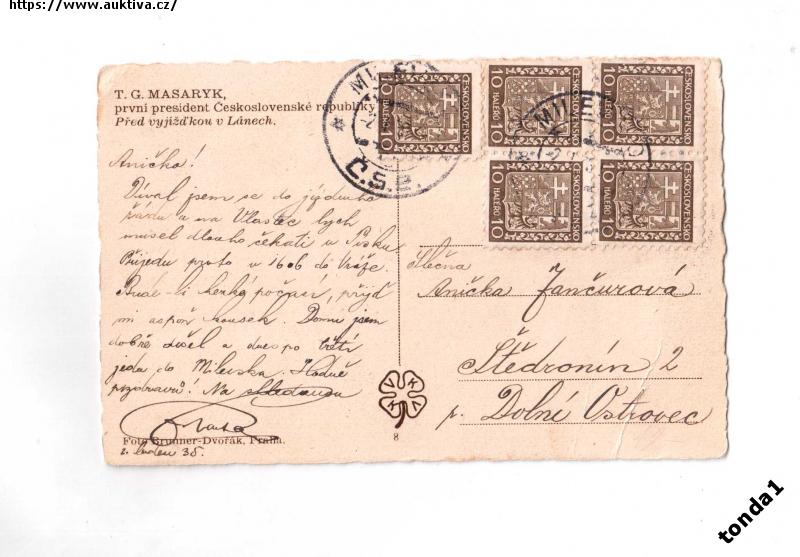 https://www.auktiva.cz/
T. G. MASARYK,
první president Československé republiky
Před vyjížďkou v Lánech.
Aničko!
Díval jsem se do jízdního
řádu a na Vlastec bych
musel dlouho čekati v Písku
Přijedu proto v 1606 do Vráže.
Bude-li hezké počasí, přijď
mi aspoň kousek. Domů jsem
dobře došel a dnes po třetí
jedu do Milevska. Hodně
pozdravů! Na shledanou
Foto Brunner-Dvořák, Praha.
35.
MILE
Č.S.P.
10 HALÉŘŮ 10
ČESKOSLOVENSKO
10 HALÉŘŮ 10
ČESKOSLOVENSKO
10 HALÉŘŮ 10
ČESKOSLOVENSKO
10 HALÉŘŮ 10
ČESKOSLOVENSKO
10 HALÉŘŮ 10
ČESKOSLOVENSKO
MILE
V K A
8
Slečna
Anička Jančurová
Štědronín 2
p. Dolní Ostrovec
tonda1